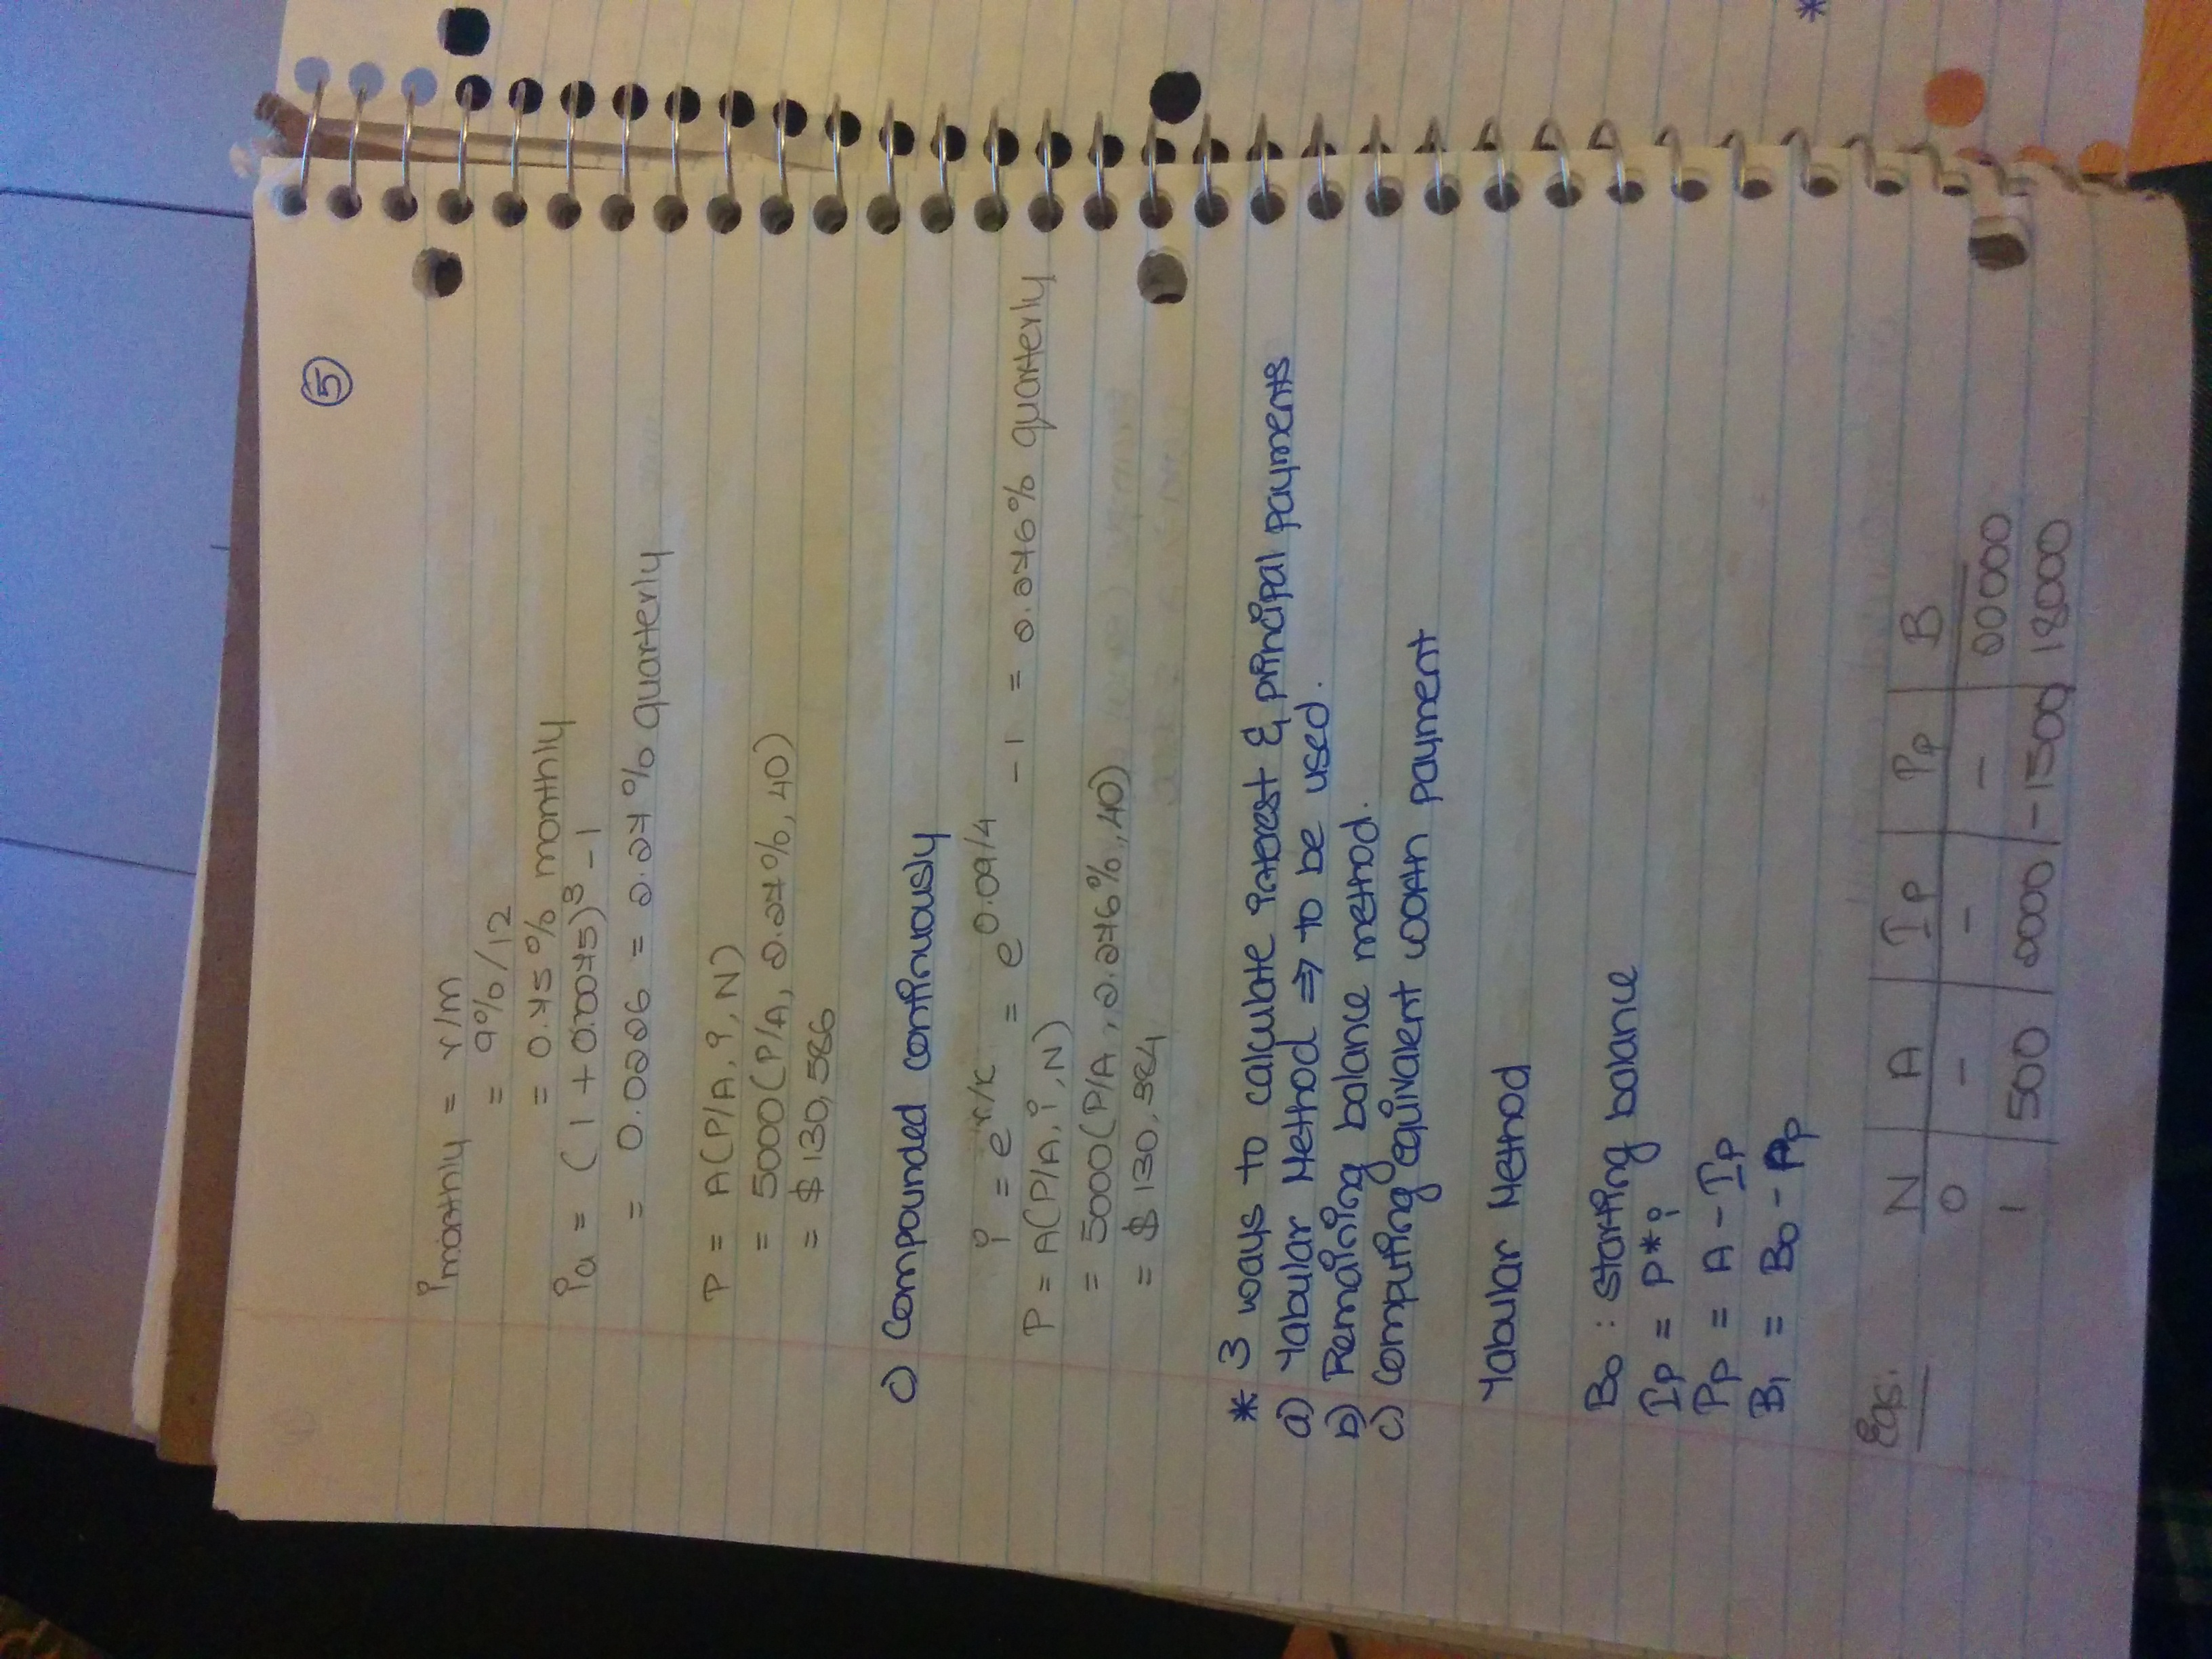 5
i monthly = r/m
= 9%/12
= 0.75% monthly
ia = (1 + 0.0075)^3 - 1
= 0.0226 = 2.27% quarterly
P = A(P/A, i, N)
= 5000(P/A, 2.27%, 40)
= $130,586
c) compounded continuously
i = e^r/k = e^0.09/4 - 1 = 2.276% quarterly
P = A(P/A, i, N)
= 5000(P/A, 2.276%, 40)
= $130,384
* 3 ways to calculate interest & principal payments
a) Tabular Method ⇒ to be used.
b) Remaining balance method.
c) computing equivalent worth payment
Tabular Method
B0 : starting balance
Ip = P*i
Pp = A - Ip
B1 = B0 - Pp
Eqs:
N | A | Ip | Pp | B
0 - - - 20000
1 | 500 | 2000 | -1500 | 18000
*